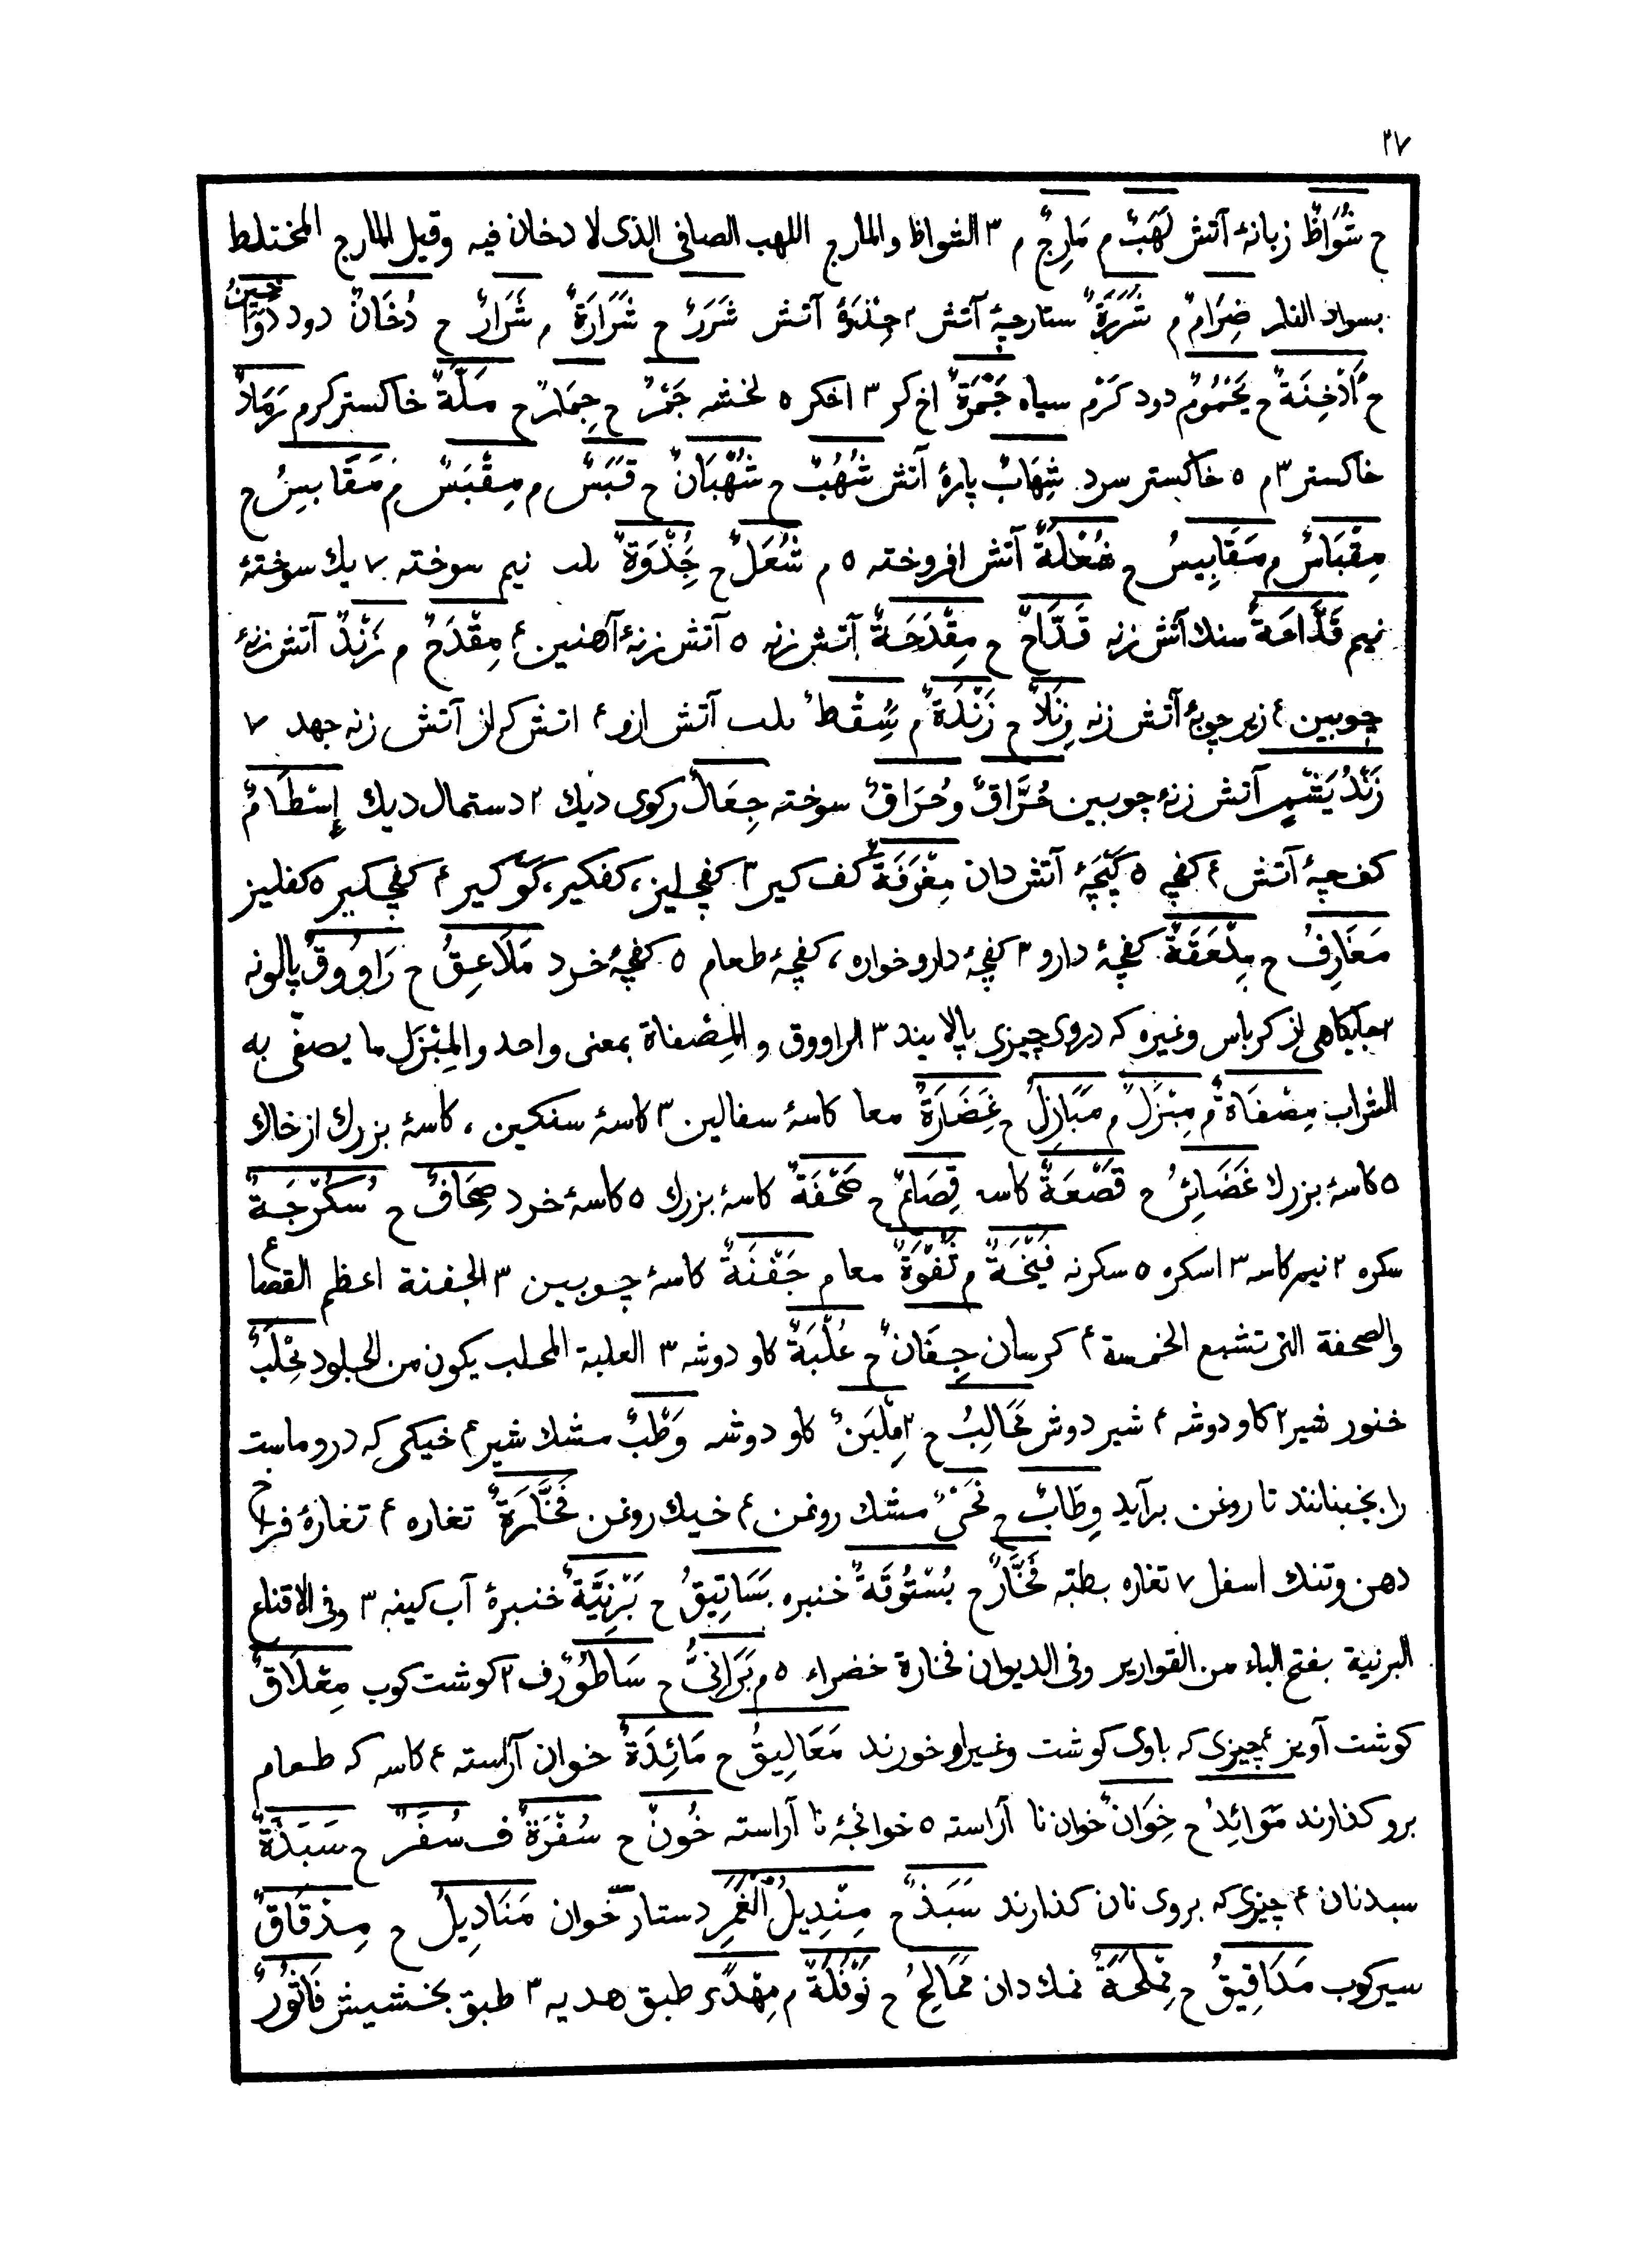 ۲۷
ح شُوَاظٌ زبانهٔ آتش لَهَبٌ م مَارِجٌ م ۳ الشواظ والمارج اللهب الصافی الذی لا دخان فیه وقیل المارج المختلط
بسواد النار ضِرَامٌ م شَرَرَةٌ ستارچهٔ آتش ۲ جذوهٔ آتش شَرَرٌ ح شَرَارَةٌ م شَرَارٌ ح دُخَانٌ دود دَوَاخِنُ
ح أَدْخِنَةٌ ح یَحْمُومٌ دود گرم سیاه جَمْرَةٌ اخ کر ۳ اخکر ۵ لخشه جَمْرٌ ح جِمَارٌ ح مَلَّةٌ خاکستر گرم رَمَادٌ
خاکستر ۳ م ۵ خاکستر سرد شِهَابٌ پارهٔ آتش شُهُبٌ ح شُهْبَانٌ ح قَبَسٌ م مِقْبَسٌ م مَقَابِسُ ح
مِقْبَاسٌ م مَقَابِیسُ ح شُعْلَةٌ آتش افروخته ۵ م شُعَلٌ ح جِذْوَةٌ نیم سوخته ۷ یك سوختهٔ
نیم قَدَّاحَةٌ سنك آتش زنه قَدَّاحٌ ح مِقْدَحَةٌ آتش زنه ۵ آتش زنهٔ آهنین ۴ مِقْدَحٌ م زَنْدٌ آتش زنهٔ
چوبین ۴ زیر چوبهٔ آتش زنه زِنَادٌ ح زَنْدَةٌ م سِقْطٌ آتش ازو ۴ اتش که از آتش زنه جهد ۷
زَنْدُ یَشْمٍ آتش زنهٔ چوبین حُرَّاقٌ وحُرَاقٌ سوخته جِعَالٌ رکوی دیك ۲ دستمال دیك إِسْطَامٌ
کفچهٔ آتش ۴ کفچه ۵ کپچهٔ آتش دان مِغْرَفَةٌ کف کیر ۳ کفچ لیز، کفکیر، کوکیر ۴ کفچ کیر ۵ کفلیز
مَغَارِفُ ح مِلْعَقَةٌ کفچهٔ دارو ۳ کفچهٔ دارو خواره، کفچهٔ طعام ۵ کفچهٔ خرد مَلَاعِقُ ح رَاوُوقٌ پالونه
از کرباس وغیره که دروی چیزی پالایند ۳ الراووق و المِصْفاة بمعنی واحد والمِبْزَل ما یصفّی به
الشراب مِصْفَاةٌ م مِبْزَلٌ م مَبَازِلُ ح غَضَارَةٌ معا کاسهٔ سفالین ۳ کاسهٔ سفکین، کاسهٔ بزرك از خاك
۵ کاسهٔ بزرك غَضَائِرُ ح قَصْعَةٌ کاسه قِصَاعٌ ح صَحْفَةٌ کاسهٔ بزرك ۵ کاسهٔ خرد صِحَافٌ ح سُكُرَّجَةٌ
سکره ۲ نیم کاسه ۳ اسکره ۵ سکرنه فَیْخَةٌ م ثُقْوَةٌ معا م جَفْنَةٌ کاسهٔ چوبین ۳ الجفنة اعظم القصاع
والصحفة التی تشبع الخمسة ۴ کرسان جِفَانٌ ح عُلْبَةٌ کاو دوشه ۳ العلبة المحلب یکون من الجلود مِحْلَبٌ
خنور شیر ۲ کاو دوشه ۴ شیر دوش مَحَالِبُ ح ۲ مِلْبَنٌ کاو دوشه وَطْبٌ مشك شیر ۴ خیکی که درو ماست
را بجنبانند تا روغن برآید وِطَابٌ ح نَحْیٌ مشك روغن ۴ خیك روغن فَخَّارَةٌ تغاره ۴ تغارهٔ فراخ
دهن وتنك اسفل ۷ تغاره بطبه فَخَّارٌ ح بُسْتُوقَةٌ خنبره بَسَاتِیقُ ح بَرْنِیَّةٌ خنبرهٔ آب کینه ۳ وفی الاقناع
البرنیة بفتح الباء من القواریر وفی الدیوان فخارة خضراء ۵ م بَرَانِیُّ ح سَاطُورٌ ف ۲ کوشت کوب مِعْلَاقٌ
کوشت آویز ۴ چیزی که باوی کوشت وغیراو خورند مَعَالِیقُ ح مَائِدَةٌ خوان آراسته ۴ کاسه که طعام
برو کذارند مَوَائِدُ ح خِوَانٌ خوان نا آراسته ۵ خوانچهٔ نا آراسته خُونٌ ح سُفْرَةٌ ف سُفَرٌ ح سَبَذَةٌ
سبد نان ۴ چیزی که بروی نان کذارند سَبَذٌ ح مِنْدِیلُ الْغَمَرِ دستار خوان مَنَادِیلُ ح مِدْقَاقٌ
سیرکوب مَدَاقِیقُ ح مِمْلَحَةٌ نمك دان مَمَالِحُ ح نَوْفَلَةٌ م مِهْدًى طبق هدیه ۳ طبق بخشیش فَاثُورٌ